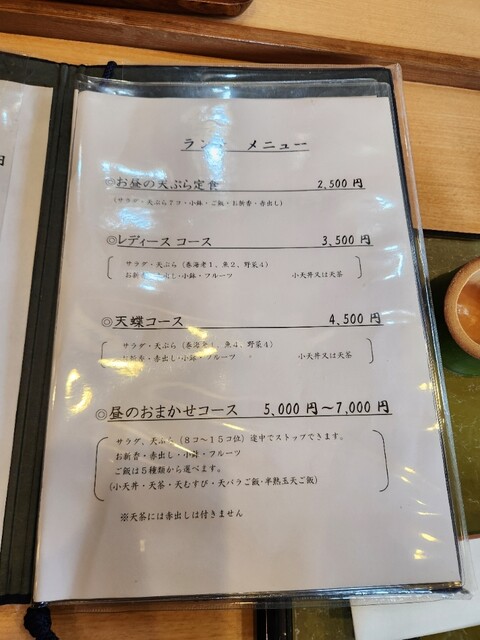 ランチ メニュー
◎お昼の天ぷら定食 2,500 円
(サラダ・天ぷら7コ・小鉢・ご飯・お新香・赤出し)
◎レディース コース 3,500 円
サラダ・天ぷら (巻海老1、魚2、野菜4)
お新香・赤出し・小鉢・フルーツ 小天丼又は天茶
◎天蝶コース 4,500 円
サラダ・天ぷら (巻海老1、魚4、野菜4)
お新香・赤出し・小鉢・フルーツ 小天丼又は天茶
◎昼のおまかせコース 5,000 円〜7,000 円
サラダ、天ぷら (8コ〜15コ位) 途中でストップできます。
お新香・赤出し・小鉢・フルーツ
ご飯は5種類から選べます。
(小天丼・天茶・天むすび・天バラご飯・半熟玉天ご飯)
※天茶には赤出しは付きません